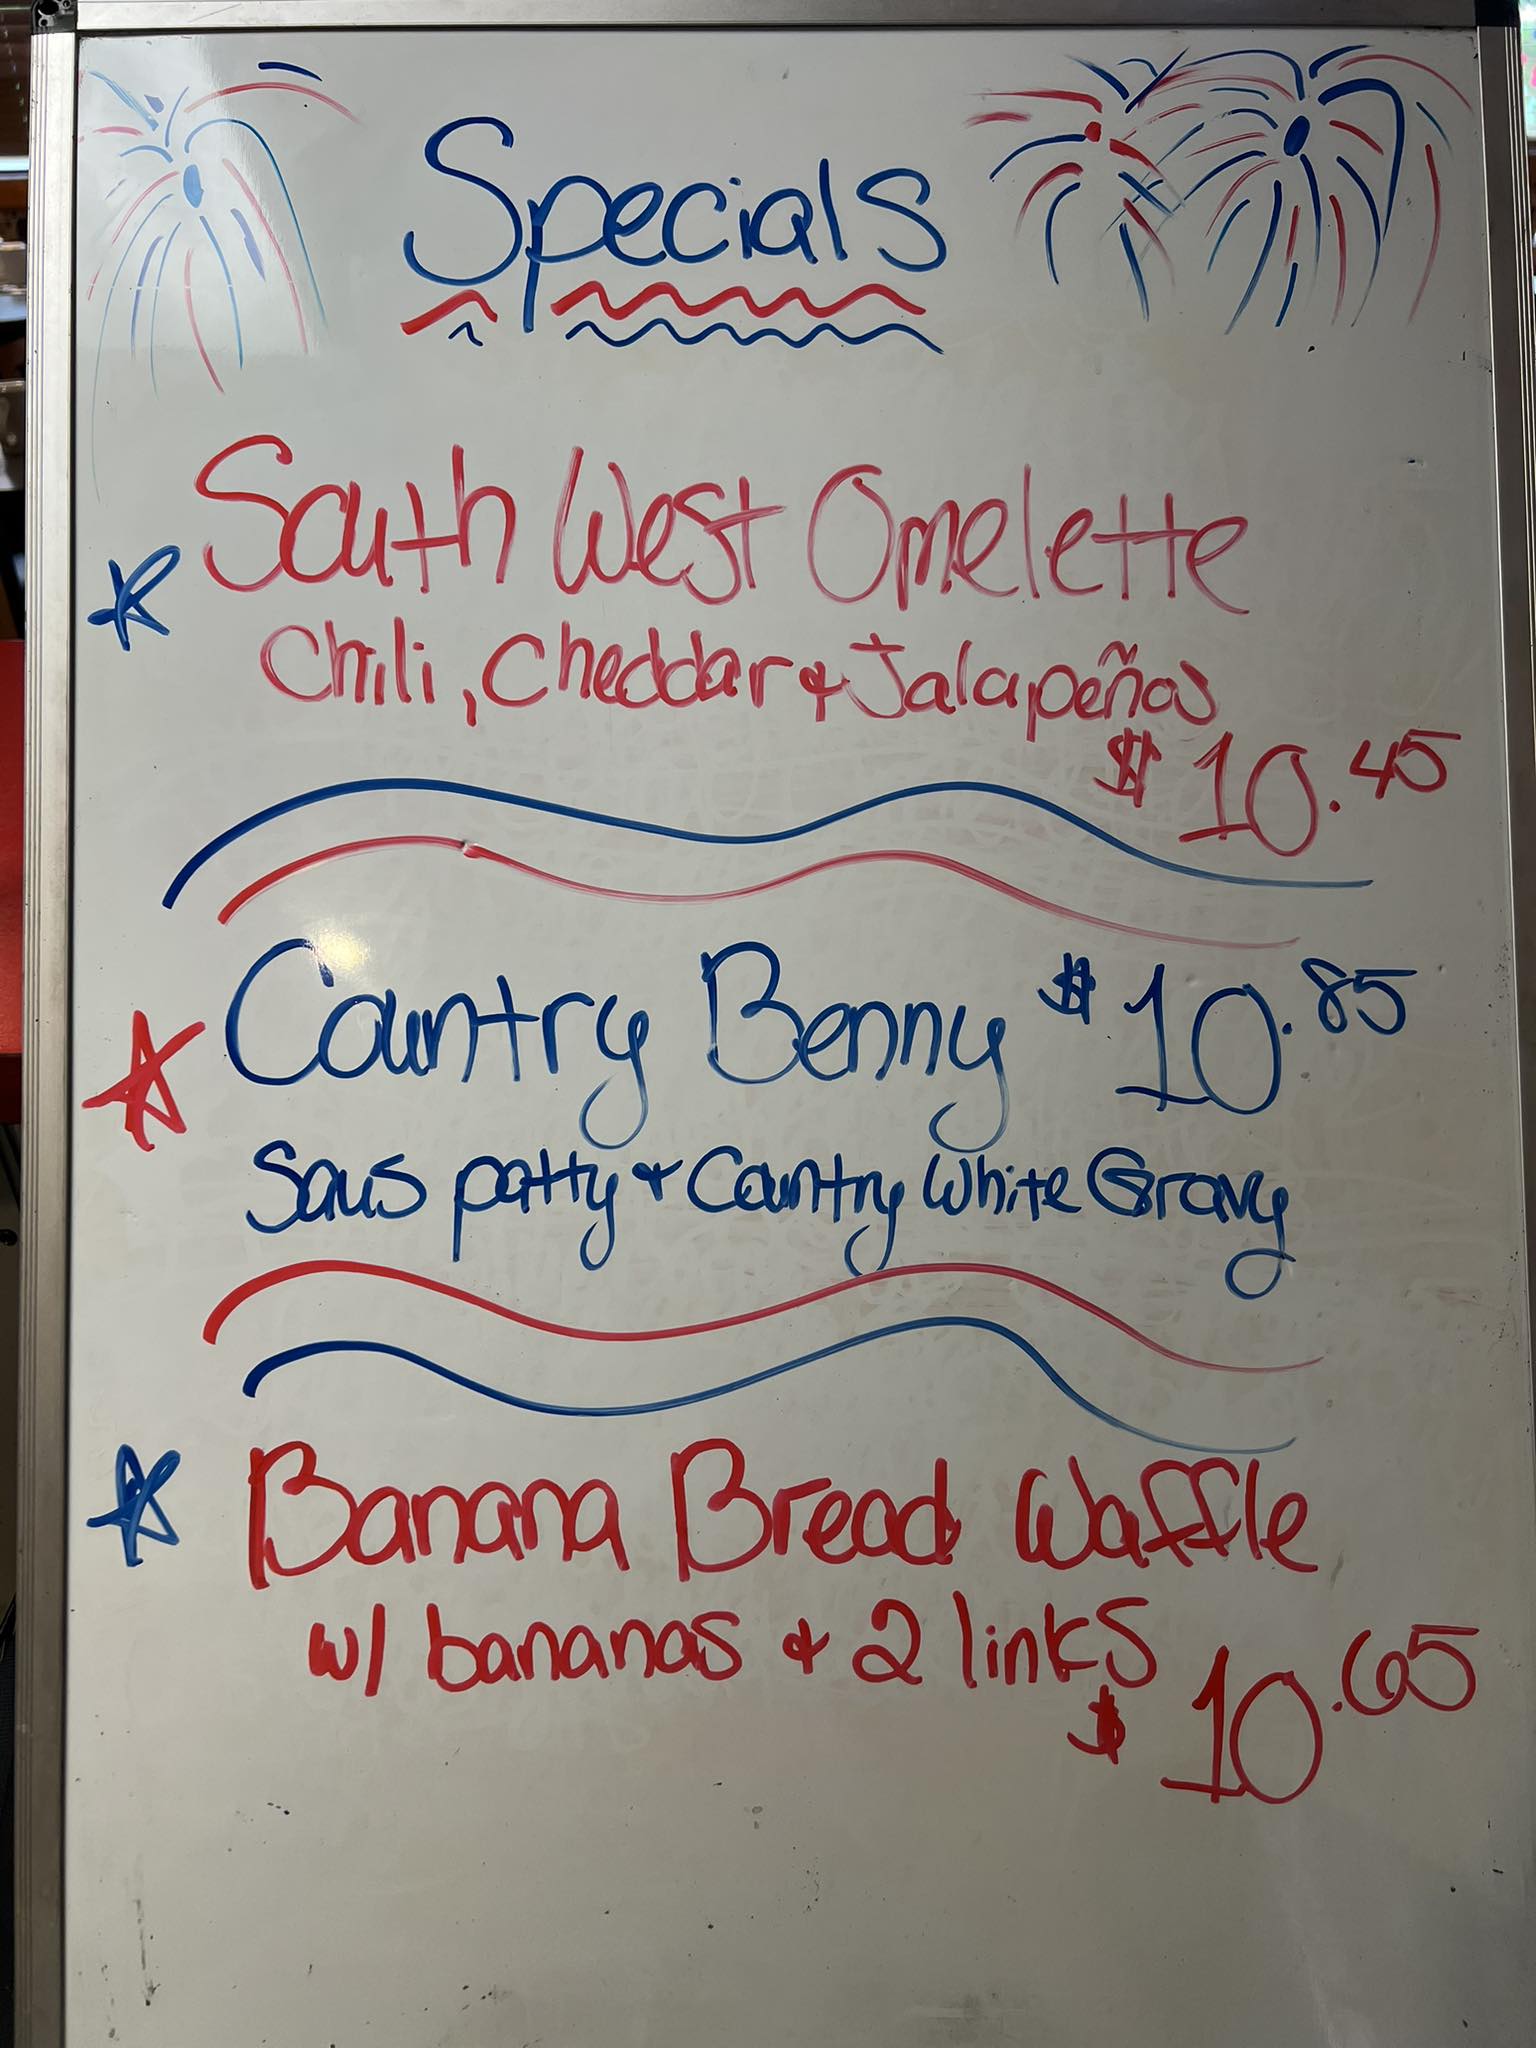 Specials
South West Omelette
Chili, Cheddar & Jalapeños
$10.45
Country Benny $10.85
Saus patty & Country White Gravy
Banana Bread Waffle
w/ bananas & 2 links
$10.65